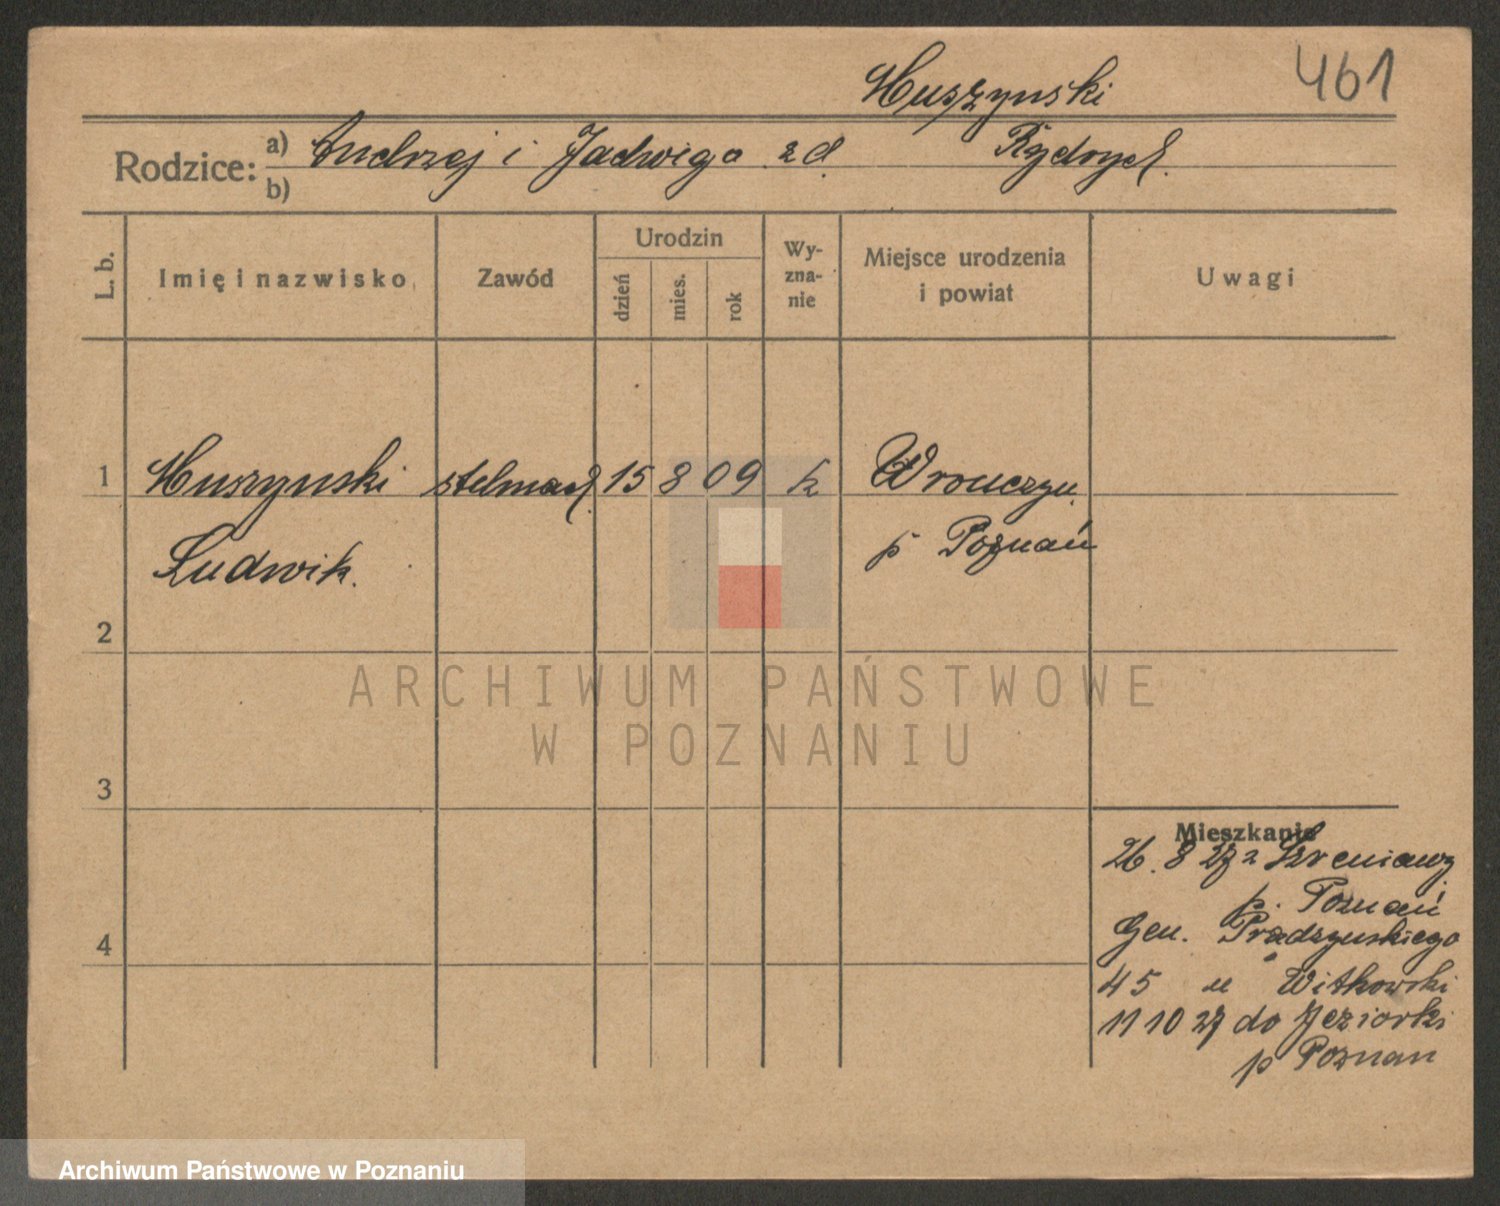 461
Muszynski
Rodzice: a) Andrzej i Jadwiga z d.
b)
L. b.
Imię i nazwisko
Zawód
Urodzin
dzień
mies.
rok
Wy-
zna-
nie
Miejsce urodzenia
i powiat
Uwagi
1 Muszynski stelmach 15 8 09 k Wronczyn
Ludwik. p Poznań
2
3
4
Mieszkanie
26. 8 27 z Szreniawy
p. Poznań
Gen. Prądzynskiego
45 u Witkowski
11 10 27 do Jeziorki
p Poznan
ARCHIWUM PAŃSTWOWE
W POZNANIU
Archiwum Państwowe w Poznaniu